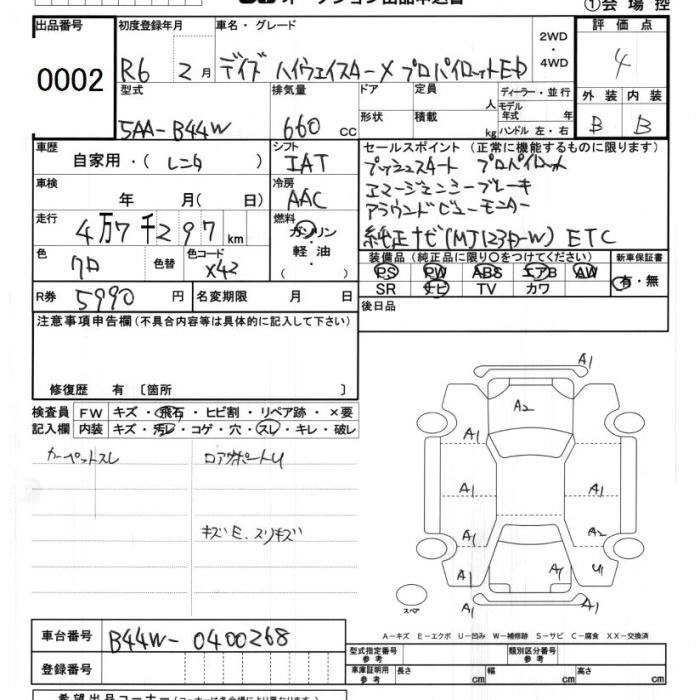 オークション出品申込書
①会場控
出品番号
0002
初度登録年月
R6 2月
車名・グレード
デイズ ハイウェイスターX プロパイロットED
2WD
・
4WD
評価点
4
型式
5AA-B44W
排気量
660 cc
ドア
形状
定員
人
積載
kg
ディーラー・並行
モデル年式 年
ハンドル 左・右
外装 内装
B B
車歴
自家用・(レンタ)
シフト
IAT
セールスポイント(正常に機能するものに限ります)
プッシュスタート プロパイロット
エマージェンシーブレーキ
アラウンドビューモニター
純正ナビ(MJ123D-W) ETC
車検
年 月(日)
冷房
AAC
走行
4万7千297km
燃料
ガソリン・
軽油・
色
クロ
色替
色コード
X42
装備品(純正品に限り○をつけてください)
PS PW ABS エアB AW
SR ナビ TV カワ
新車保証書
有・無
R券 5990円
名変期限 月 日
後日品
注意事項申告欄(不具合内容等は具体的に記入して下さい)
修復歴 有〔箇所 〕
検査員
記入欄
FW キズ・飛石・ヒビ割・リペア跡・×要
内装 キズ・汚レ・コゲ・穴・スレ・キレ・破レ
カーペットスレ
ロアサポートU
キズE.スリキズ
A1
A2
A1 A1
A1 A1
A1 A2
A1 A1 U1
A1
スペア
A-キズ E-エクボ U-凹み W-補修跡 S-サビ C-腐食 XX-交換済
車台番号 B44W-0400268
登録番号
型式指定番号
参考
類別区分番号
参考
車庫証明用
参考
長さ cm 幅 cm 高さ cm
希望出品コーナー(コーナーは各会場により異なります)